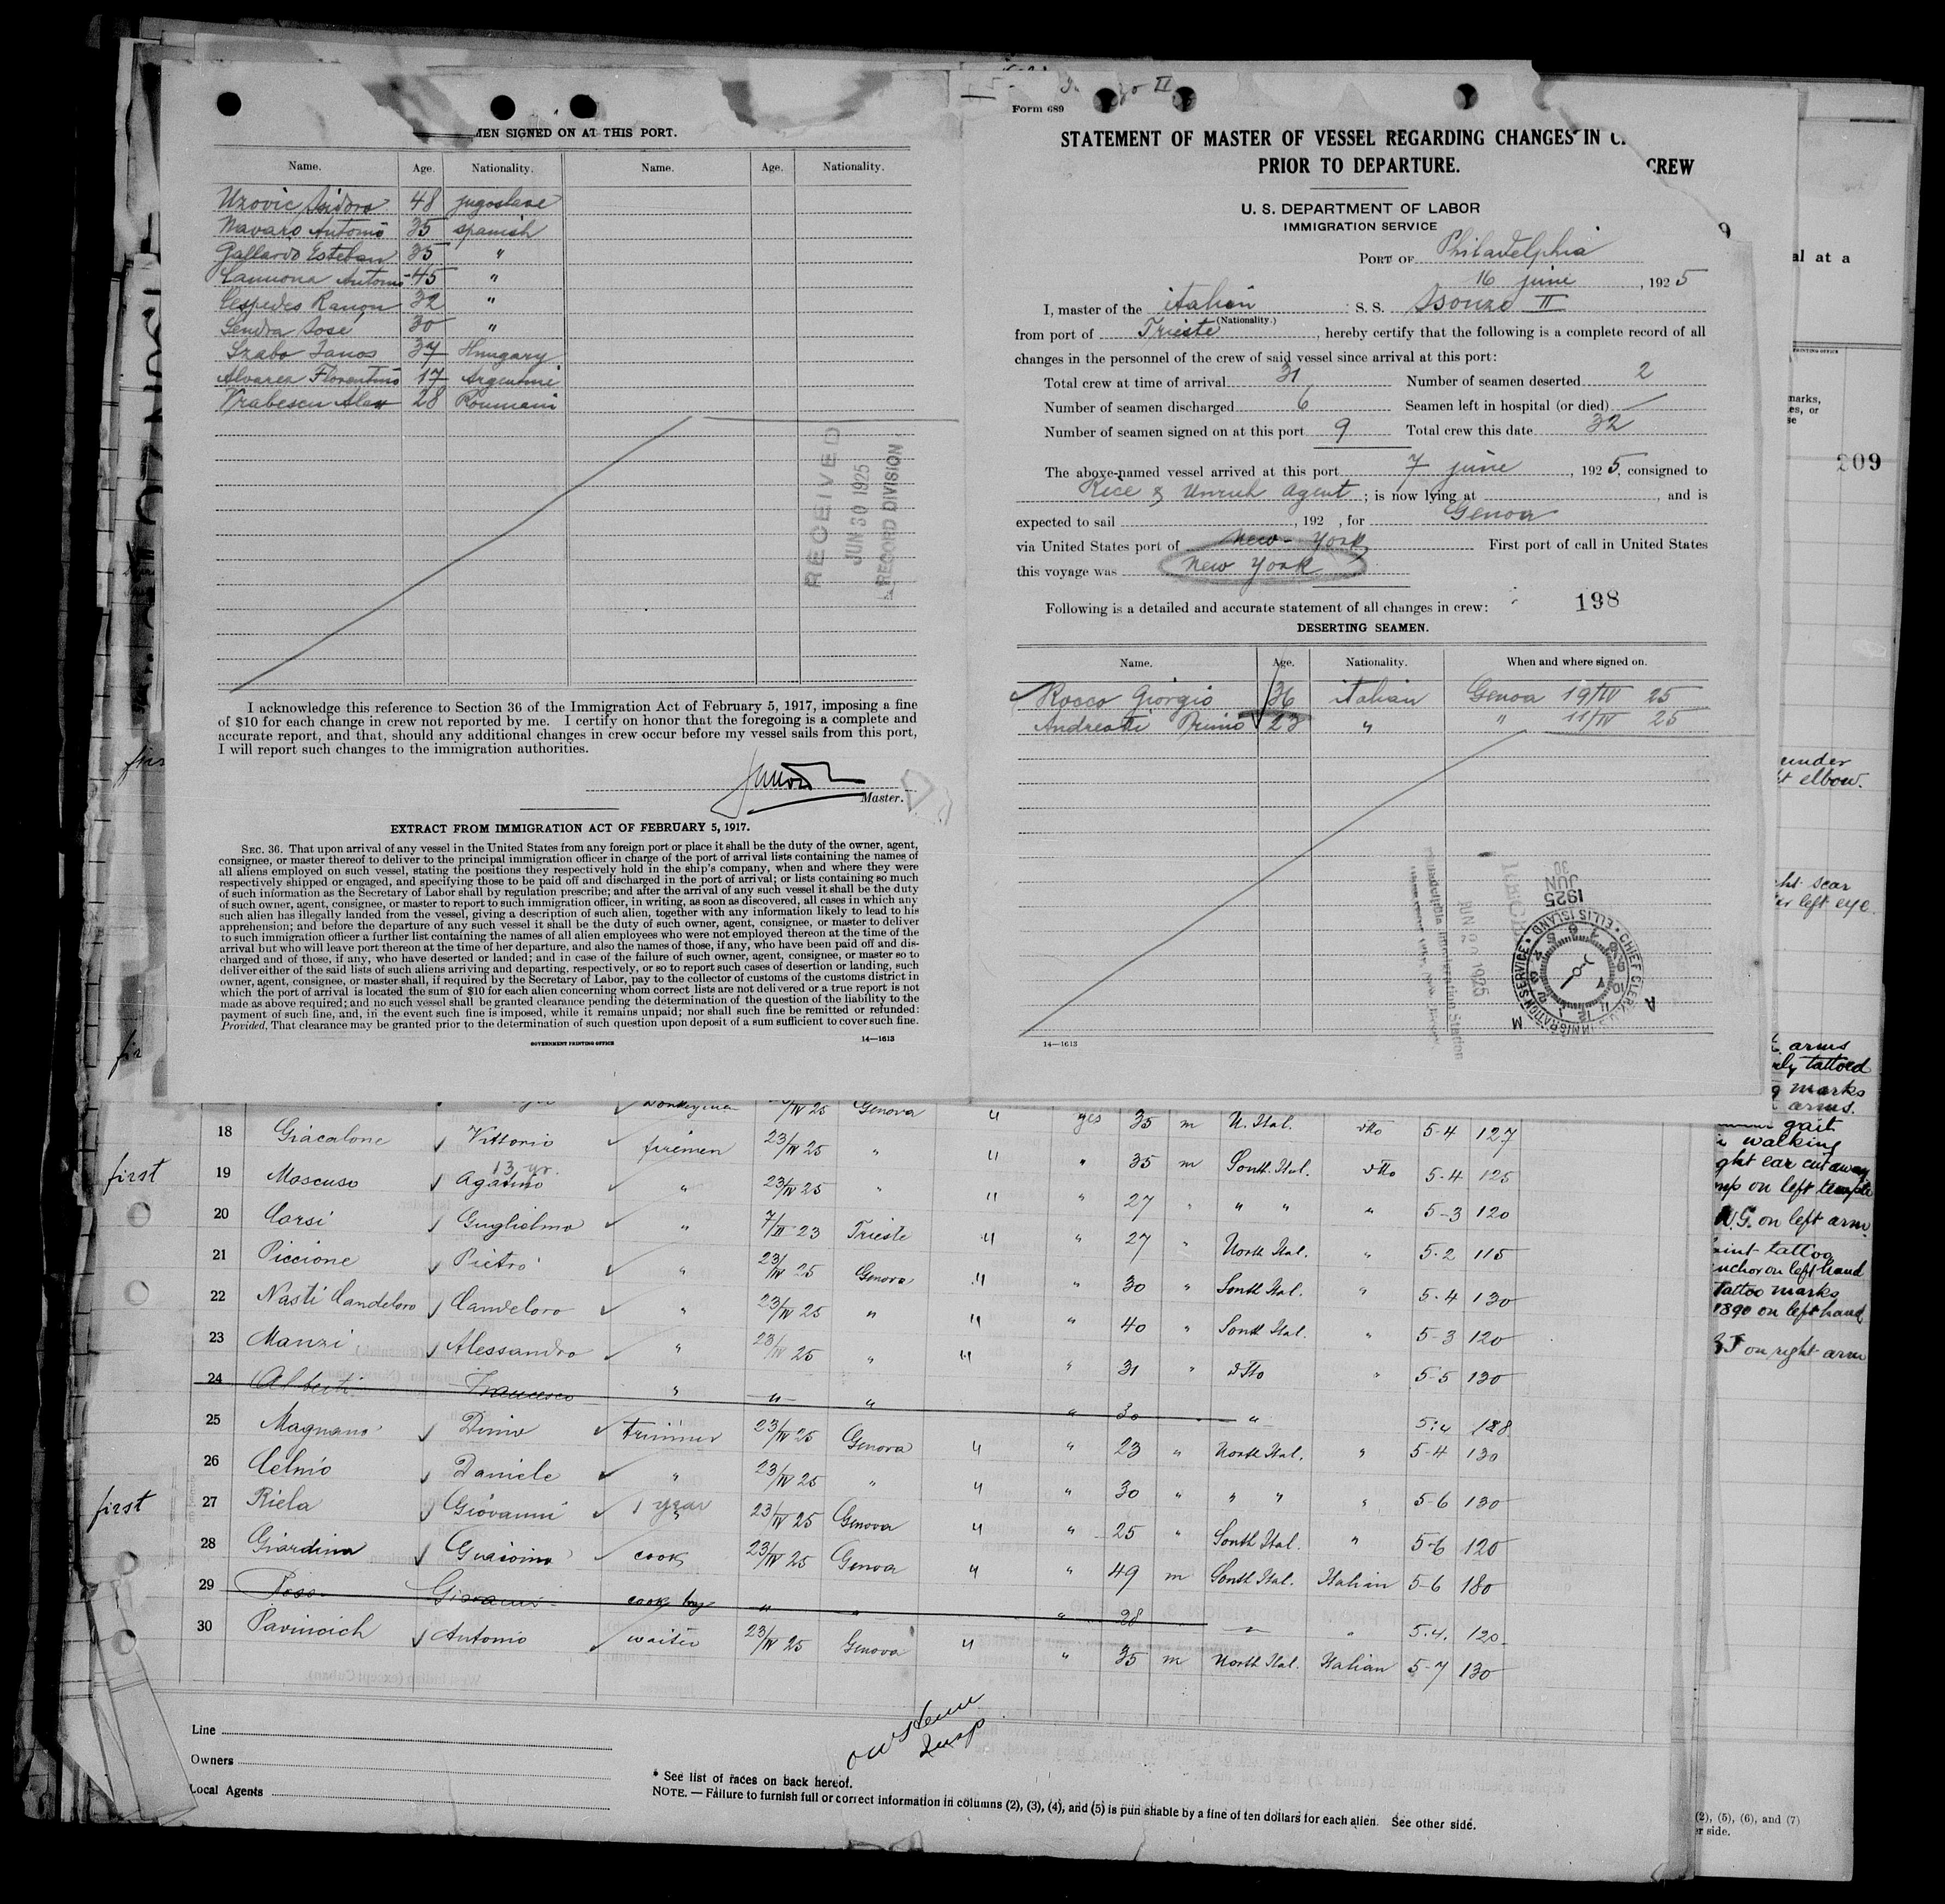 MEN SIGNED ON AT THIS PORT.
Name. Age. Nationality. Name. Age. Nationality.
Uzovic Isidoro 48 jugoslave
Navaro Antonio 35 spanish
Gallardo Esteban 35 "
Antonio 45 "
Cespedes Ramon 32 "
Sendra José 30 "
Szabo Janos 37 Hungary
Alvarez Florentino 17 Argentine
Vrabescu Alex 28 Roumani
RECEIVED
JUN 30 1925
RECORD DIVISION
I acknowledge this reference to Section 36 of the Immigration Act of February 5, 1917, imposing a fine
of $10 for each change in crew not reported by me. I certify on honor that the foregoing is a complete and
accurate report, and that, should any additional changes in crew occur before my vessel sails from this port,
I will report such changes to the immigration authorities.
Master.
EXTRACT FROM IMMIGRATION ACT OF FEBRUARY 5, 1917.
SEC. 36. That upon arrival of any vessel in the United States from any foreign port or place it shall be the duty of the owner, agent,
consignee, or master thereof to deliver to the principal immigration officer in charge of the port of arrival lists containing the names of
all aliens employed on such vessel, stating the positions they respectively hold in the ship's company, when and where they were
respectively shipped or engaged, and specifying those to be paid off and discharged in the port of arrival; or lists containing so much
of such information as the Secretary of Labor shall by regulation prescribe; and after the arrival of any such vessel it shall be the duty
of such owner, agent, consignee, or master to report to such immigration officer, in writing, as soon as discovered, all cases in which any
such alien has illegally landed from the vessel, giving a description of such alien, together with any information likely to lead to his
apprehension; and before the departure of any such vessel it shall be the duty of such owner, agent, consignee, or master to deliver
to such immigration officer a further list containing the names of all alien employees who were not employed thereon at the time of the
arrival but who will leave port thereon at the time of her departure, and also the names of those, if any, who have been paid off and dis-
charged and of those, if any, who have deserted or landed; and in case of the failure of such owner, agent, consignee, or master so to
deliver either of the said lists of such aliens arriving and departing, respectively, or so to report such cases of desertion or landing, such
owner, agent, consignee, or master shall, if required by the Secretary of Labor, pay to the collector of customs of the customs district in
which the port of arrival is located the sum of $10 for each alien concerning whom correct lists are not delivered or a true report is not
made as above required; and no such vessel shall be granted clearance pending the determination of the question of the liability to the
payment of such fine, and, in the event such fine is imposed, while it remains unpaid; nor shall such fine be remitted or refunded:
Provided, That clearance may be granted prior to the determination of such question upon deposit of a sum sufficient to cover such fine.
GOVERNMENT PRINTING OFFICE 14—1613
Form 689
STATEMENT OF MASTER OF VESSEL REGARDING CHANGES IN C
PRIOR TO DEPARTURE. CREW
U. S. DEPARTMENT OF LABOR
IMMIGRATION SERVICE
PORT OF Philadelphia
16 june, 1925
I, master of the italian S. S. Isonzo II
(Nationality.)
from port of Trieste, hereby certify that the following is a complete record of all
changes in the personnel of the crew of said vessel since arrival at this port:
Total crew at time of arrival 31 Number of seamen deserted 2
Number of seamen discharged 6 Seamen left in hospital (or died)
Number of seamen signed on at this port 9 Total crew this date 32
The above-named vessel arrived at this port 7 june, 1925, consigned to
Rice & Unruh Agent; is now lying at , and is
expected to sail , 192 , for Genoa
via United States port of New-York First port of call in United States
this voyage was New York
Following is a detailed and accurate statement of all changes in crew: 198
DESERTING SEAMEN.
Name. Age. Nationality. When and where signed on.
Rocco Giorgio 36 italian Genoa 19/IV 25
Andreatti Primo 23 " " 11/IV 25
JUN 30 1925
Philadelphia Immigration Station
30
JUN
1925
CHIEF CLERK
ELLIS ISLAND
U.S. IMMIGRATION SERVICE
A
M
14—1613
al at a
marks,
es, or
se
209
under
t elbow.
ht scar
er left eye.
arms
ily tattoed
marks
arms.
gait
walking
ght ear cut away
mp on left temple
W.G. on left arm
aint tattoo
nchor on left hand
Tattoo marks
1890 on left hand
on right arm
Donkeyman /IV 25 Genova " yes 35 m N. Ital. dtto 5-4 127
18 Giacalone Vittorio firemen 23/IV 25 " " " 35 m South Ital. dtto 5-4 125
first 19 Moscuso 13 yr. Agatino " 23/IV 25 " " " 27 " " " " 5-3 120
20 Corsi Guglielmo " 7/II 23 Trieste " " 27 " North Ital. " 5-2 115
21 Piccione Pietro " 23/IV 25 Genova " " 30 " South Ital. " 5-4 130
22 Nasti Candeloro Candeloro " 23/IV 25 " " " 40 " South Ital. " 5-3 120
23 Manzi Alessandro " 23/IV 25 " " " 31 " dtto " 5-5 130
24 Alberti Francesco " " " " 30 " 5:4 128
25 Magnano Dimo trimmer 23/IV 25 Genova " " 23 " North Ital. " 5-4 130
26 Celmo Daniele " 23/IV 25 " " " 30 " " " " 5-6 130
first 27 Riela Giovanni 1 year " 23/IV 25 Genova " " 25 " South Ital. " 5-6 120
28 Giardina cook 23/IV 25 Genoa " " 49 m South Ital. Italian 5-6 180
29 Giovanni cooks boy " " " 28 " 5.4. 120
30 Pavinoich Antonio waiter 23/IV 25 Genova " " 35 m North Ital. Italian 5-7 130
Line
Owners
Local Agents
Insp
* See list of races on back hereof.
NOTE. — Failure to furnish full or correct information in columns (2), (3), (4), and (5) is punishable by a fine of ten dollars for each alien. See other side.
(2), (5), (6), and (7)
er side.